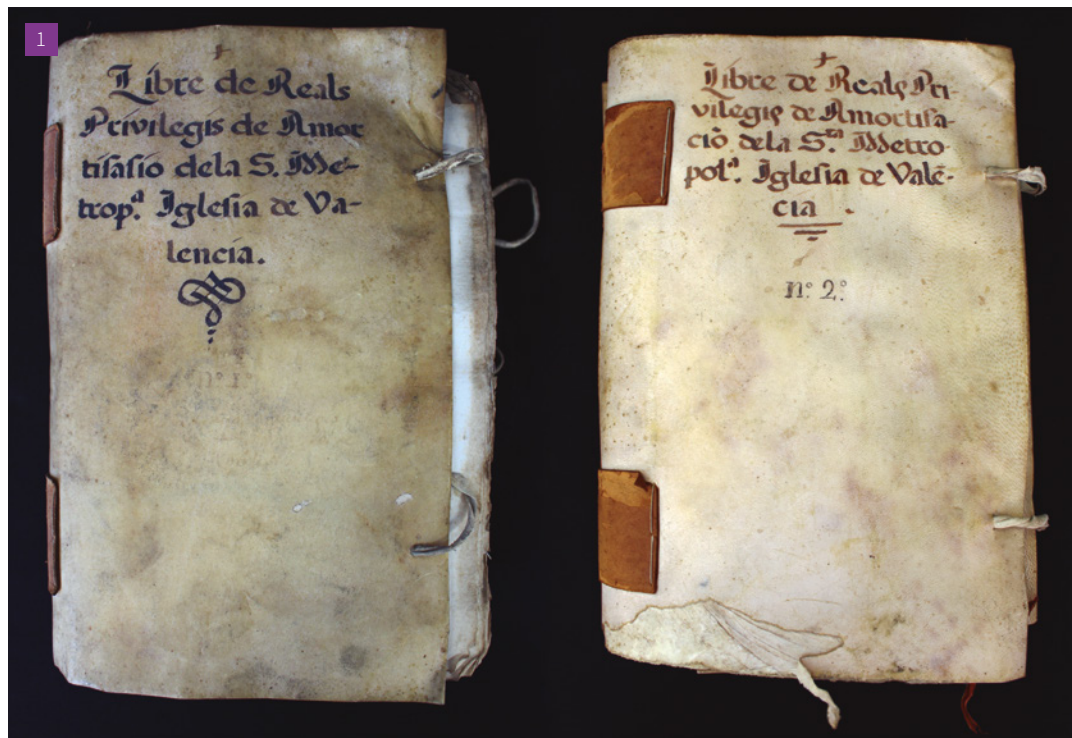 1
+
Libre de Reals
Privilegis de Amor
tisasio dela S. Me-
trop.ª Iglesia de Va-
lencia.
nº 1º
+
Libre de Reals Pri-
vilegis de Amortisa-
ciô dela S.ta Metro-
pol.ª Iglesia de Valē-
cia.
nº 2º